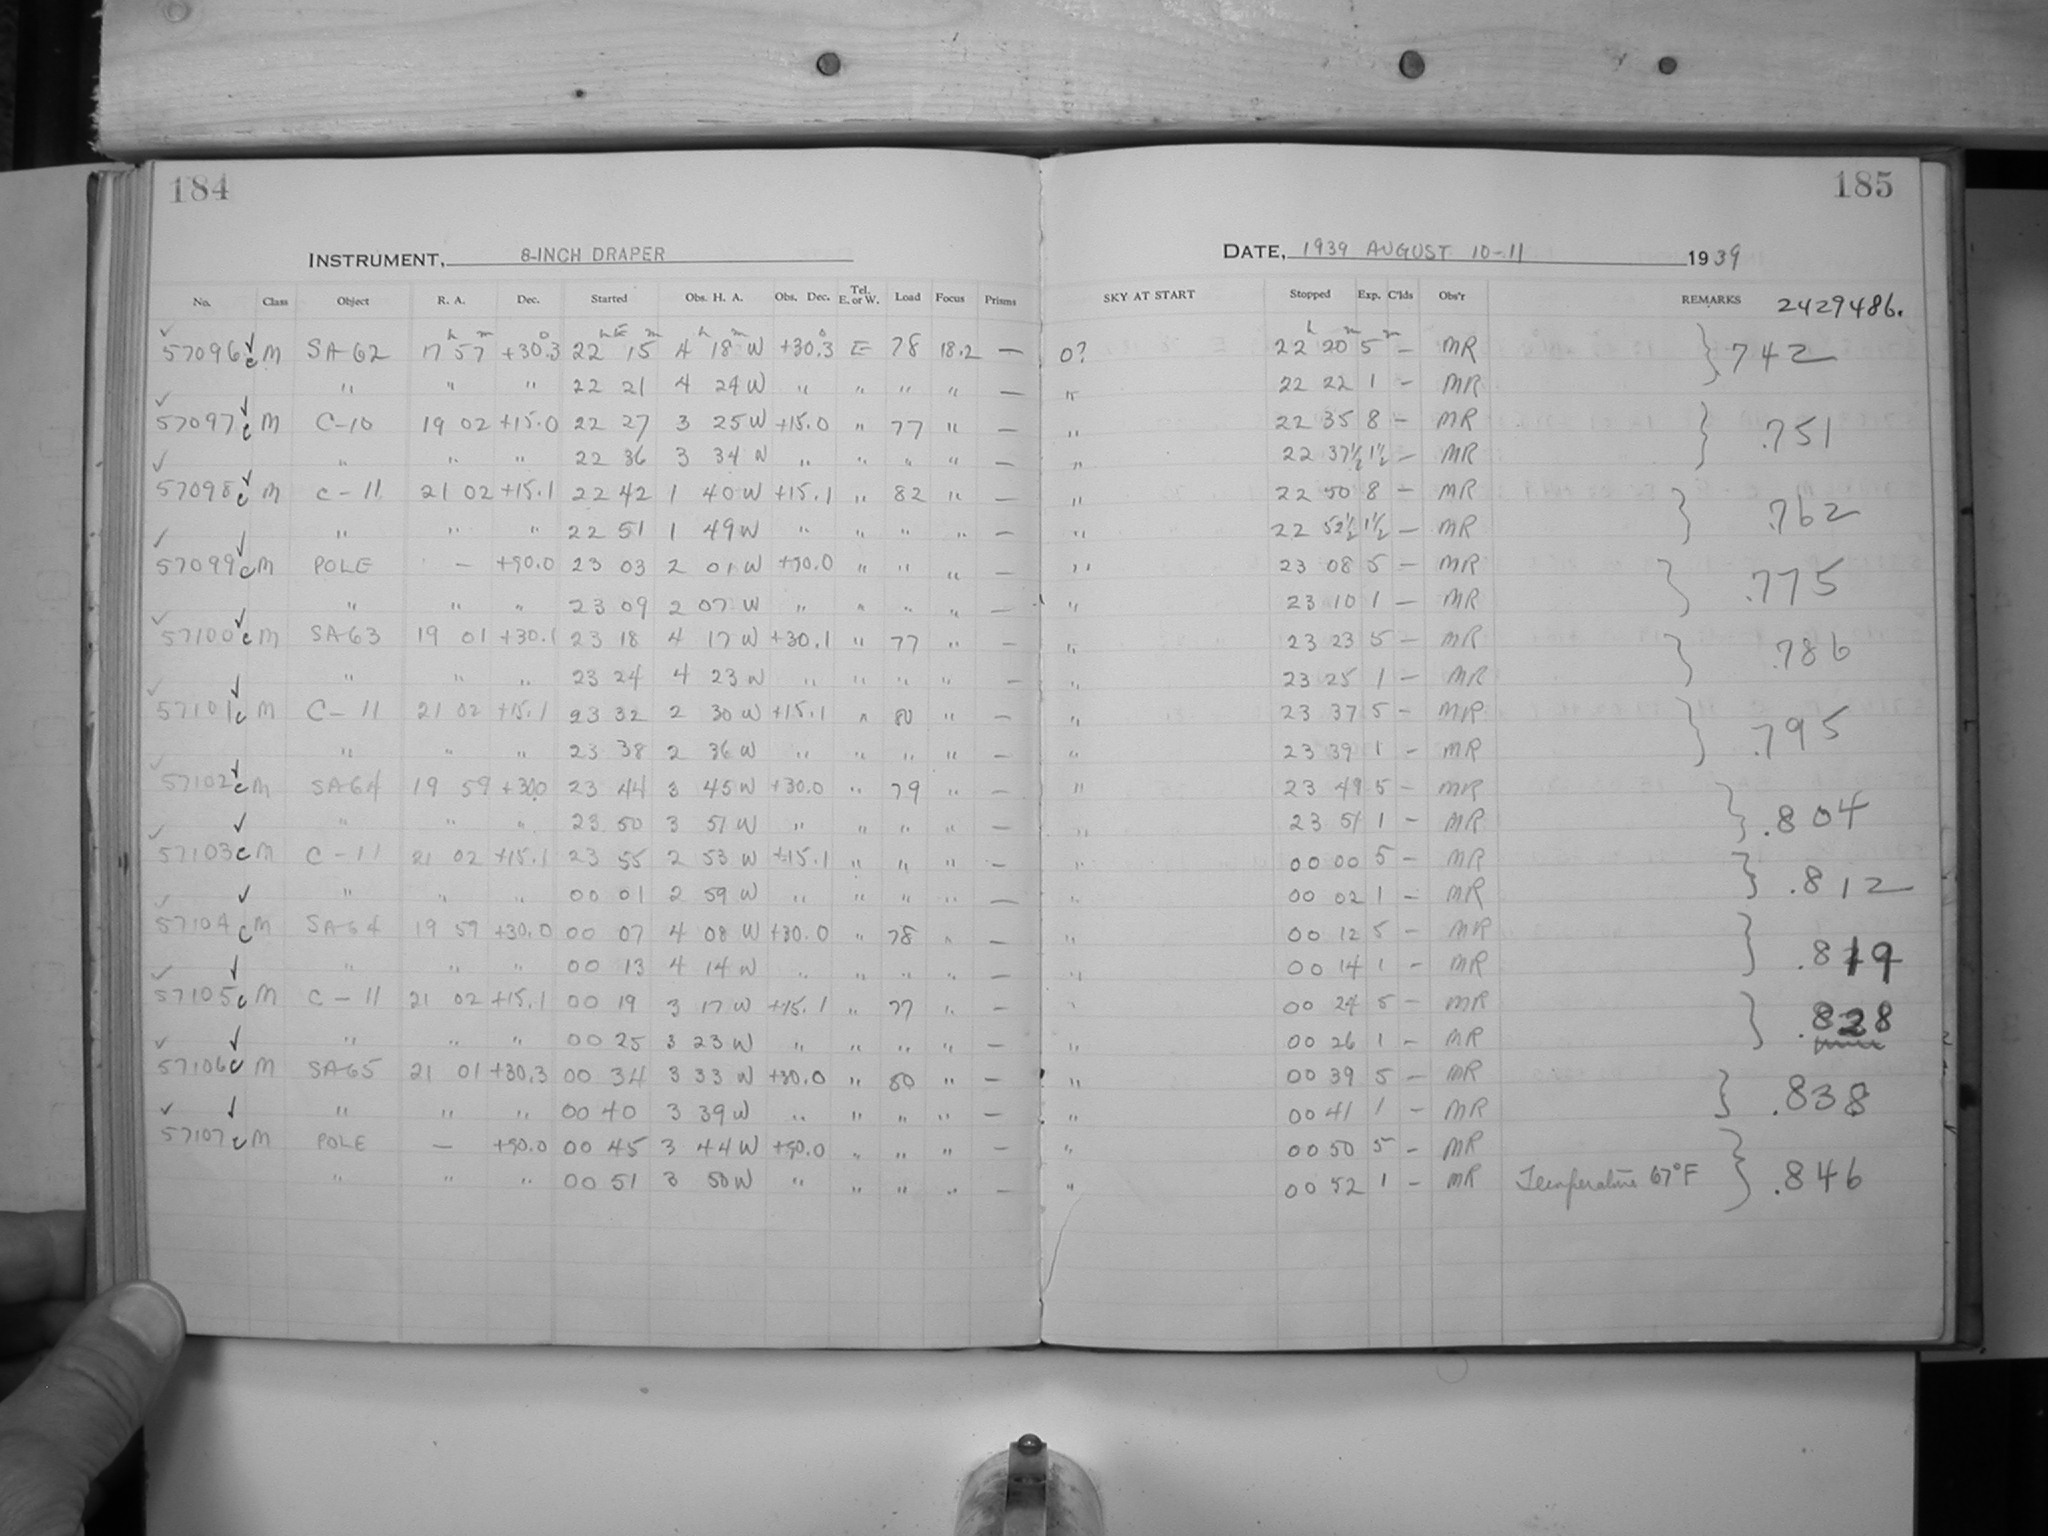 184
185
INSTRUMENT, 8-INCH DRAPER
DATE, 1939 AUGUST 10-11 1939
No. Class Object R. A. Dec. Started Obs. H. A. Obs. Dec. Tel. E. or W. Load Focus Prisms SKY AT START Stopped Exp. C'lds Obs'r REMARKS 2429486.
57096 c M SA 62 17h 57m +30°.3 22h 15m 4h 18m W +30°.3 E 78 18.2 — 0? 22h 20m 5m — MR } 742
" " " 22 21 4 24 W " " " " — " 22 22 1 — MR
57097 c M C-10 19 02 +15.0 22 27 3 25 W +15.0 " 77 " — " 22 35 8 — MR } .751
" " " 22 36 3 34 W " " " " — " 22 37½ 1½ — MR
57098 c M C-11 21 02 +15.1 22 42 1 40 W +15.1 " 82 " — " 22 50 8 — MR } .762
" " " 22 51 1 49 W " " " " — " 22 52½ 1½ — MR
57099 c M POLE — +90.0 23 03 2 01 W +90.0 " " " — " 23 08 5 — MR } .775
" " " 23 09 2 07 W " " " " — " 23 10 1 — MR
57100 c M SA 63 19 01 +30.1 23 18 4 17 W +30.1 " 77 " — " 23 23 5 — MR } .786
" " " 23 24 4 23 W " " " " — " 23 25 1 — MR
57101 c M C-11 21 02 +15.1 23 32 2 30 W +15.1 " 80 " — " 23 37 5 — MR } .795
" " " 23 38 2 36 W " " " " — " 23 39 1 — MR
57102 c M SA 64 19 59 +30.0 23 44 3 45 W +30.0 " 79 " — " 23 49 5 — MR } .804
" " " 23 50 3 51 W " " " " — " 23 51 1 — MR
57103 c M C-11 21 02 +15.1 23 55 2 53 W +15.1 " " " — " 00 00 5 — MR } .812
" " " 00 01 2 59 W " " " " — " 00 02 1 — MR
57104 c M SA 64 19 59 +30.0 00 07 4 08 W +30.0 " 78 " — " 00 12 5 — MR } .819
" " " 00 13 4 14 W " " " " — " 00 14 1 — MR
57105 c M C-11 21 02 +15.1 00 19 3 17 W +15.1 " 77 " — " 00 24 5 — MR } .828
" " " 00 25 3 23 W " " " " — " 00 26 1 — MR
57106 c M SA 65 21 01 +30.3 00 34 3 33 W +30.0 " 80 " — " 00 39 5 — MR } .838
" " " 00 40 3 39 W " " " " — " 00 41 1 — MR
57107 c M POLE — +90.0 00 45 3 44 W +90.0 " " " — " 00 50 5 — MR } .846
" " " 00 51 3 50 W " " " " — " 00 52 1 — MR Temperature 67°F